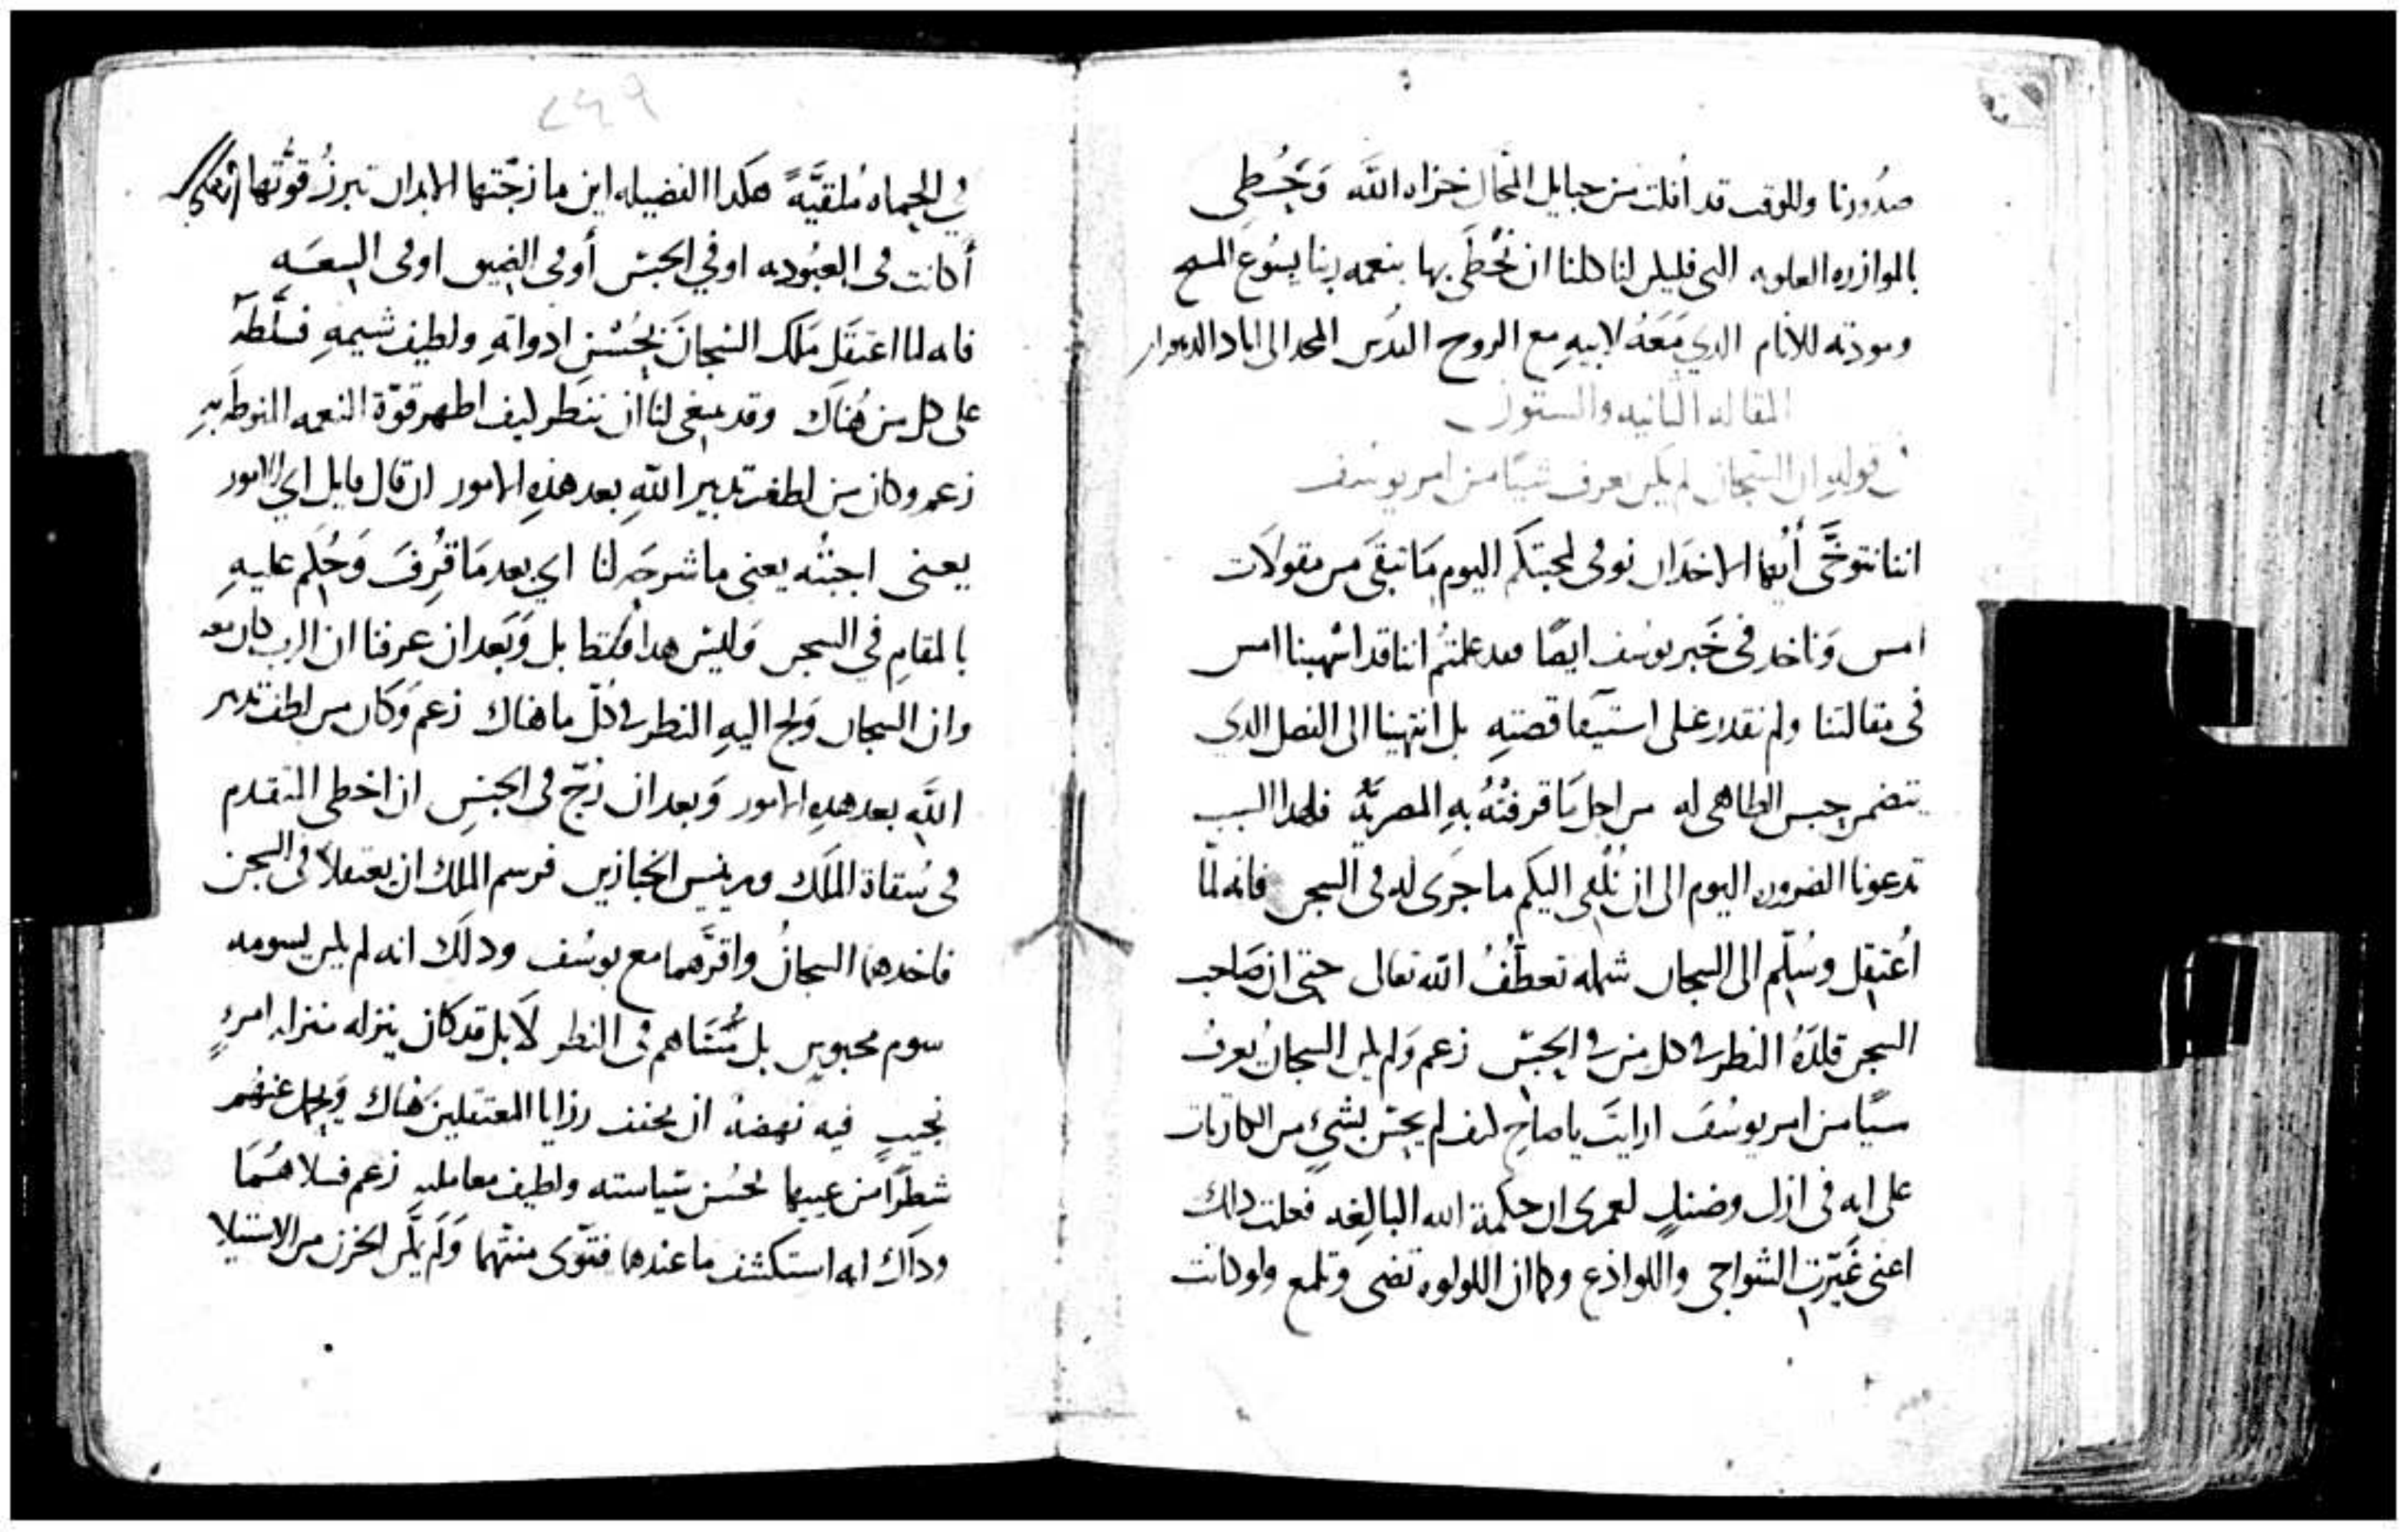 صدورنا وللوقت قد افلت من حبايل المحال خزاه الله وَنحُظى
بالموازره العلويه التي فليكن لنا كلنا ان نُحْظَى بها بنعمه ربنا يسُوع المسيح
ومودته للانام الدي مَعَهُ لابيهِ مع الروح القدس المجد الى اباد
المقاله الثانيه والستون
في قولهِ ان السجان لم يكن يعرف شيًا من امر يوسُف
اننا نتوخَّى أيُها الاخدان نوفى لمحبتكم اليوم مَا تبقىَ من مقولاَت
امس وَناخد في خَبر يوسُف ايضًا فقد علمتُم اننا قد اسْهبنا امس
في مقالتنا ولم نقدر على استيفآ قصتهِ بل انتهينا الى الفصل الدي
يتضمن حبس الطاهي له من اجل مَا قرفتْهُ بهِ المصريَّهُ فلهدا السبب
تدعونا الضروره اليوم الى ان نُلْقى اليكم ما جَرَى له في السجن فانه لمّا
اُعتقِل وسُلّم الى السجان شمله تعطّفُ الله تعالى حتى ان صَاحب
السجن قلدَهُ النظر في كل من في الحبْس زعم وَلم يكن السجانُ يعرفُ
شيًا من امر يوسُفَ ارايتَ يا صاحِ كيف لم يحسّ بشيٍ من الكاربات
على انه في ازل وضنكٍ لعمرى ان حكمة الله البالِغه فعلت دلك
اعنى غَيّرتِ الشواجي واللواذع وكما ان اللولوه تضى وتلمع ولو كانت
٢٤٩
في الحماه مُلقيَّهً هَكدا الفضيله اين ما زجّتها الابدان تبرزُ قوَّتها
أكانت في العبُوديه او في الحبْس أو في الضيق او في السعَه
فانه لما اعتقَل مَلَك السجانَ بحُسْنِ ادواتهِ ولطيف شيمهِ فسلَّطهُ
على كل من هُناَك وقد ينبغي لنا ان ننظر كيف اظهر قوّة النعمه المنوطه بهِ
زعم وكان من لطف تدبير اللهِ بعد هذهِ الامور ان قال قايل اي الامور
يعنى اجبتُه يعنى ما شرحَه لنا اي بعد مَا قُرِفَ وَحُكِم عليهِ
بالمقامِ في السجن وَليْس هدا فقط بل وَبَعد ان عرفنا ان الرب كان معه
وان السجان وَلج اليهِ النظر في كلّ ما هناك زعم وَكان من لطف تدبير
اللهِ بعد هدهِ الامور وَبعد ان زُجّ في الحبْسِ ان اخطى المتقدم
في سُقاة الملَك وريْيس الخبازين فرسم الملك ان يعتقلاَ في السجن
فاخدهمَا السجانُ واقرَّهما مع يوسُف ودلَك انه لم يكن يسومه
سوم محبوسٍ بل مُسَاهم في النظر لاَ بل قد كان ينزله منزله امرءٍ
نجيبٍ فيه نهضه ان يخفف رزايا المعتقلين هناك وَيحمل عنهُم
شطرًا من عيبها بحُسْن سياسته ولطيف معاملتهِ زعم فسلاهمَا
ودلَك انه استكشف ما عندهما فقوّى منتهما وَلَم يكُن الحزن من الاستيلا